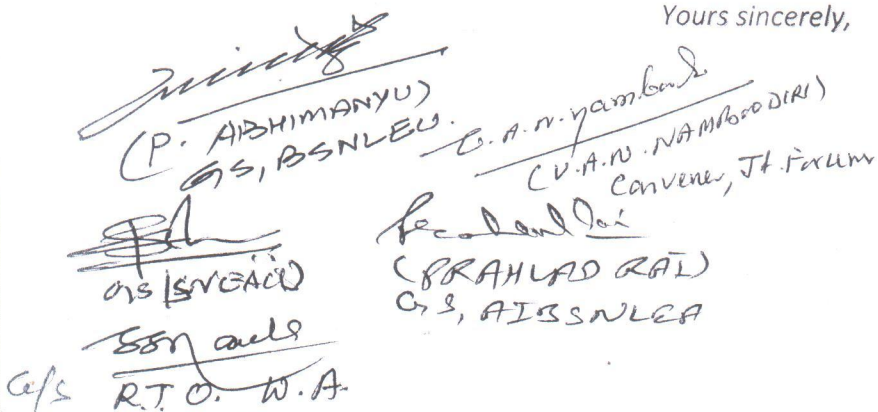 Yours sincerely,
(P. ABHIMANYU)
GS, BSNLEU.
V.A.N. Namboodi
(V.A.N. NAMBOODIRI)
Convener, Jt. Forum
GS (SNEA(I))
Prahlad Rai
(PRAHLAD RAI)
GS, AIBSNLEA
G/S R.T.O. W.A.